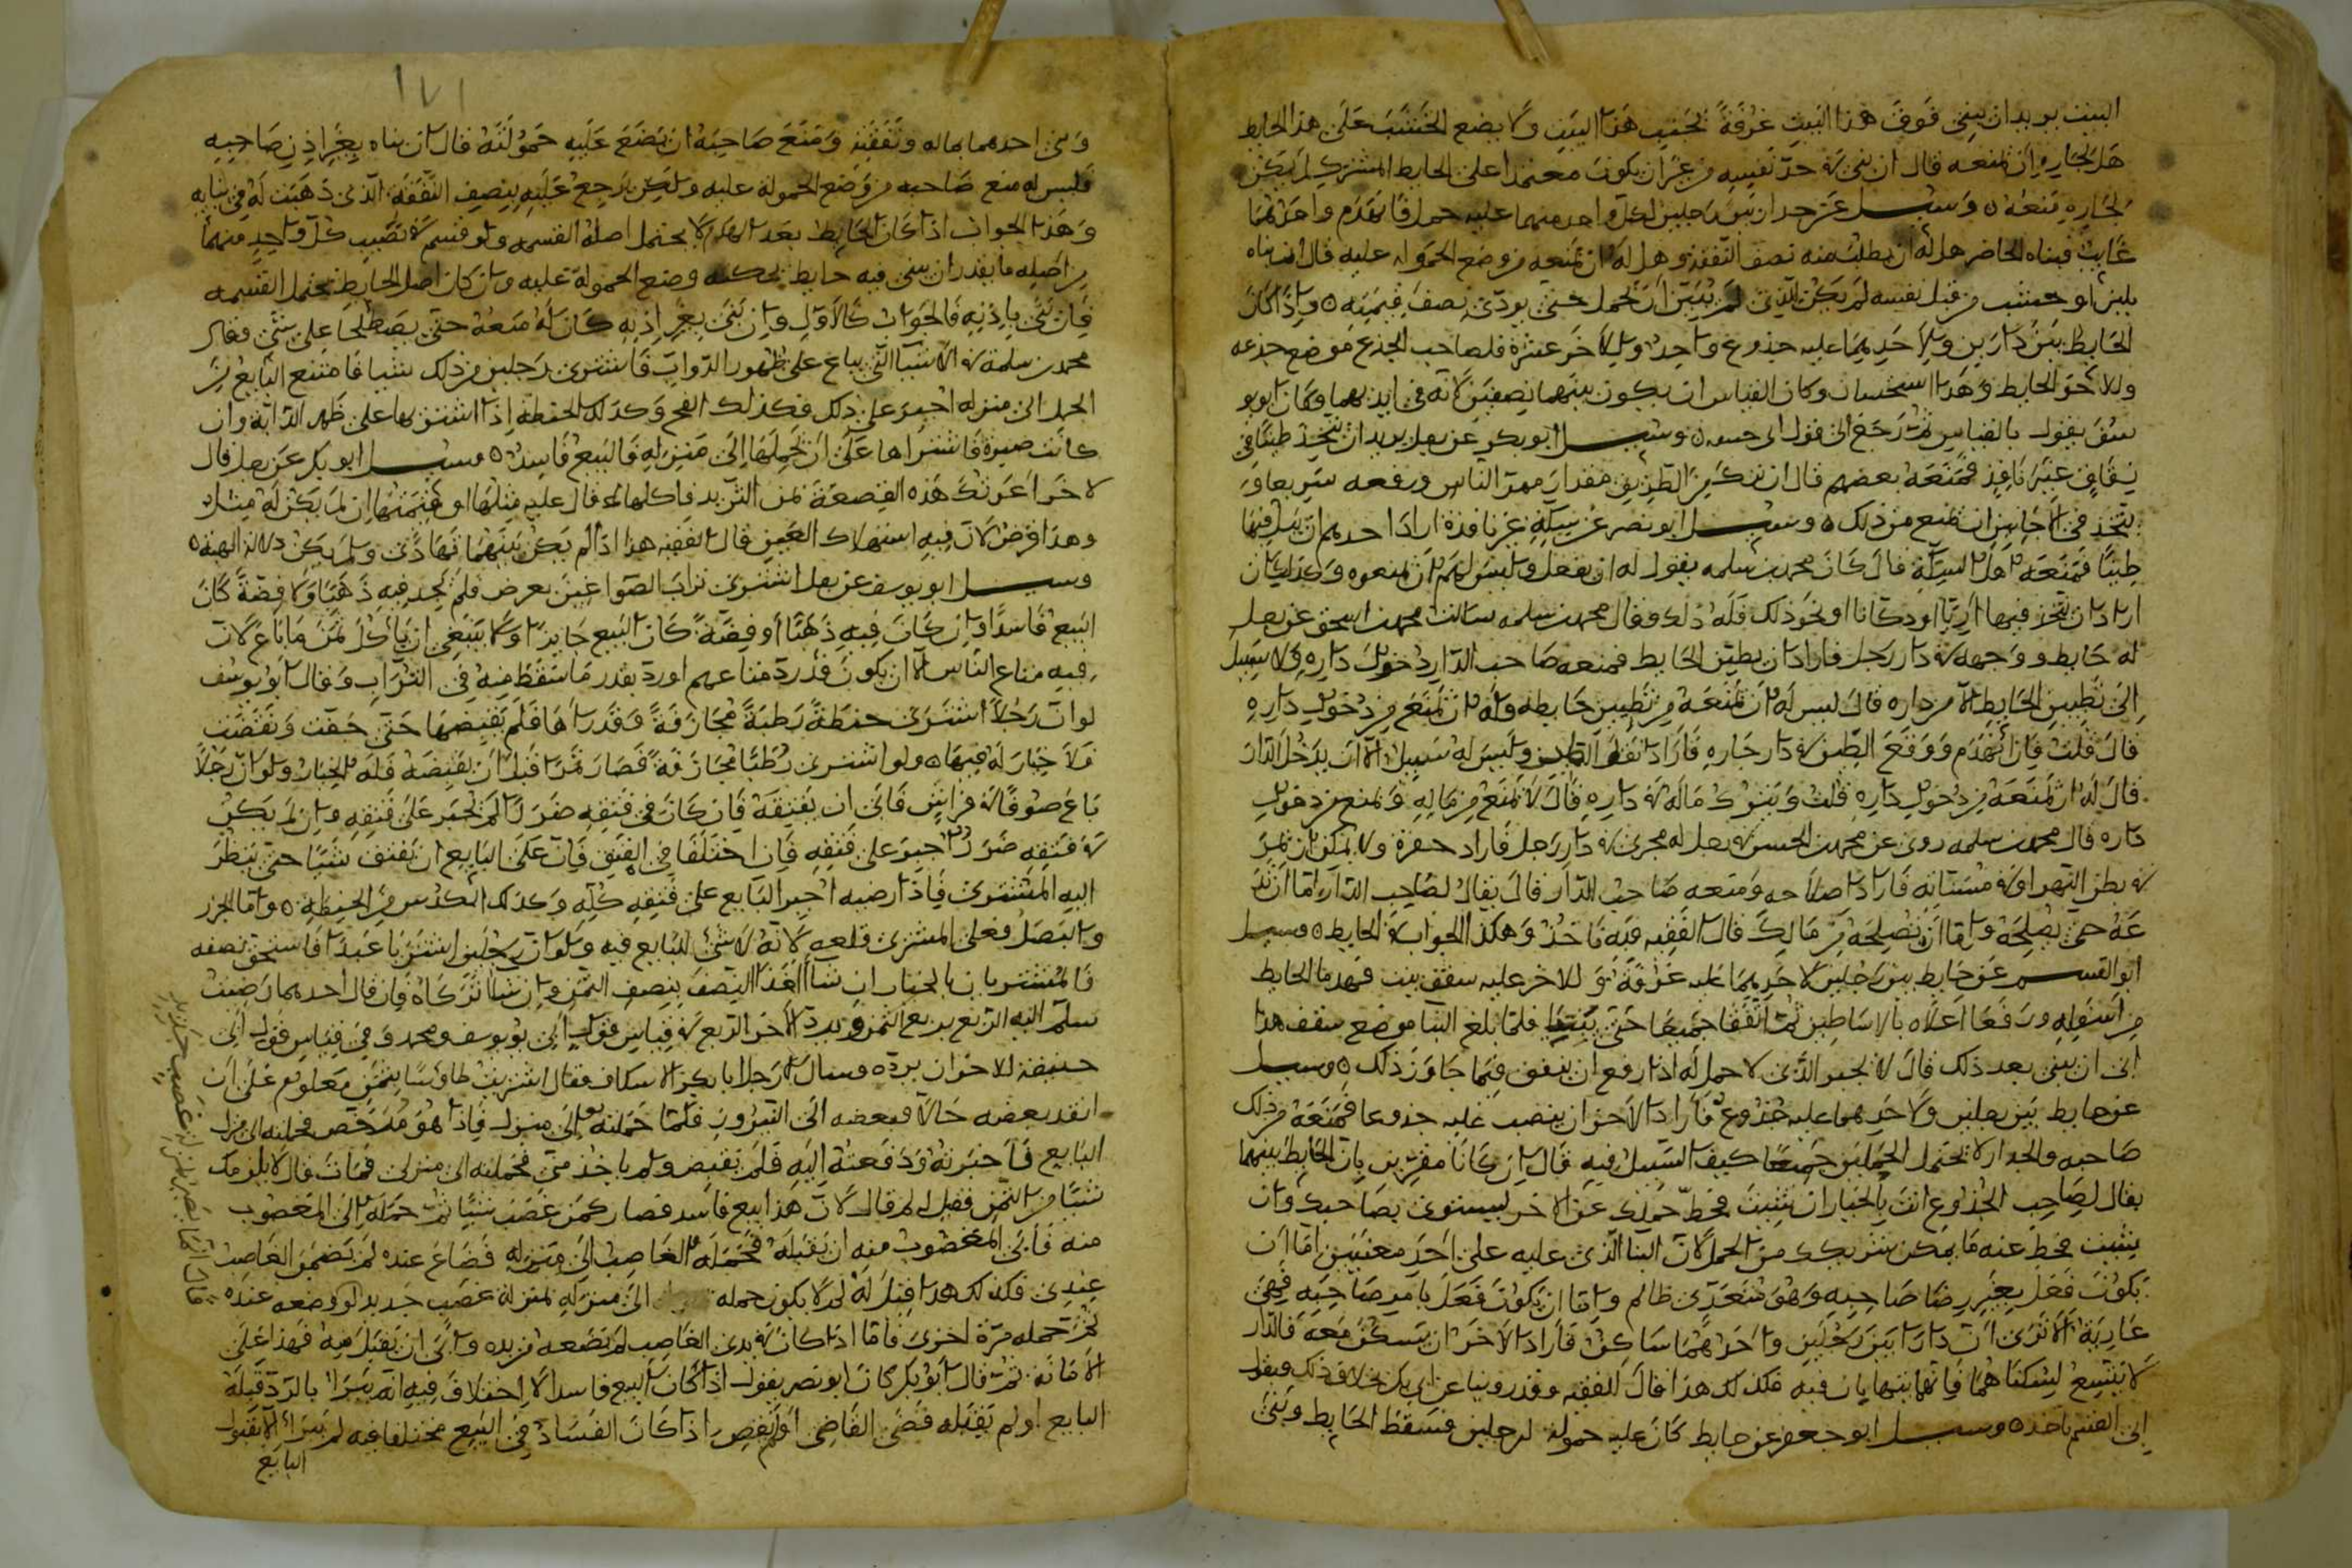 البيت يريد ان يبني فوق هذا البيت غرفة بجنب هذا البيت ولا يضع الخشب على هذا الحايط
هل لجاره ان يمنعه قال ان بنى في حد نفسه من غير ان يكون معتمدا على الحايط المشترك لم يكن
لجاره منعه ٥ وسيل عن جدار بين رجلين لكل واحد منهما عليه حمل فانهدم واحدهما
غايب فبناه الحاضر هل له ان يطلب منه نصف النفقة وهل له ان يمنعه من وضع الحمولة عليه قال ان بناه
بلبن او خشب من قبل نفسه لم يكن للذي لم يبن ان يحمل حتى يودي نصف قيمته ٥ واذا كان
الحايط بين دارين ولاحديهما عليه جذوع واحد وللاخر عشرة فلصاحب الجذع موضع جذعه
وللاخر الحايط وهذا استحسان وكان القياس ان يكون بينهما نصفين لانه في ايديهما وكان ابو يو
سف يقول بالقياس ثم رجع الى قول ابي حنيفة ٥ وسيل ابو بكر عن رجل يريد ان يتخذ طينا في
زقاق غير نافذ فمنعه بعضهم قال ان ترك من الطريق مقدار ممر الناس ورفعه سريعا و
يتخذ في الاحايين ان يمنع من ذلك ٥ وسيل ابو نصر عن سكة غير نافذة اراد احدهم ان يبل فيها
طينا فمنعه اهل السكة قال كان محمد بن سلمه يقول له ان يفعل وليس لهم ان يمنعوه وكذلك ان
اراد ان يتخذ فيها اريا او دكانا او نحو ذلك فله ذلك وقال محمد بن سلمه سالت محمد بن اسحق عن رجل
له حايط ووجهه في دار رجل فاراد ان يطين الحايط فمنعه صاحب الدار دخول داره ولا سبيل
الى تطيين الحايط الا من داره قال ليس له ان يمنعه من تطيين حايطه وله ان يمنع من دخول داره
قال قلت فان انهدم ووقع الطين في دار جاره فاراد نقل الطين وليس له سبيل الا ان يدخل الدار
قال له ان يمنعه من دخول داره قلت ويترك ماله في داره قال لا يمنع من ماله ويمنع من دخول
داره قال محمد بن سلمه روي عن محمد بن الحسن في رجل له مجرى في دار رجل فاراد حفره ولا يمكن ان يمر
في بطن النهر او في مسناته فاراد اصلاحه ومنعه صاحب الدار قال يقال لصاحب الدار اما ان تد
عه حتى يصلحه واما ان تصلحه من مالك قال الفقيه فبه ناخذ وهكذا الجواب في الحايط ٥ وسيل
ابو القسم عن حايط بين رجلين لاحديهما عليه غرفة وللاخر عليه سقف بيت فهدما الحايط
من اسفله ورفعا اعلاه بالاساطين ثم اتفقا جميعا حتى بنيا فلما بلغ البنا موضع سقف هذا
ابى ان يبني بعد ذلك قال لا يجبر الذي لا حمل له اذا رفع ان ينفق فيما جاوز ذلك ٥ وسيل
عن حايط بين رجلين ولاحدهما عليه جذوع فاراد الاخر ان ينصب عليه جذوعا فمنعه من ذلك
صاحبه والجدار لا يحتمل الحملين جميعا كيف السبيل فيه قال ان كانا مقرين بان الحايط بينهما
يقال لصاحب الجذوع انت بالخيار ان شيت فحط حملك عن الاخر ليستوي بصاحبك وان
شيت فحط عنه ما يمكن شريكك من الحمل لان البنا الذي عليه على احد معنيين اما ان
يكون فعل بغير رضا صاحبه وهو متعدي ظالم واما ان يكون فعل بامر صاحبه فهي
عارية الا ترى ان دارا بين رجلين واحدهما ساكن فاراد الاخر ان يسكن معه فالدار
لا يتسع لسكناهما فانهما يتهايان فيه فكذلك هذا قال الفقيه وقد روينا عن ابي بكر بخلاف ذلك وبقول
ابي القسم ناخذ ٥ وسيل ابو جعفر عن حايط كان عليه حمولة لرجلين فسقط الحايط وبنى
١٧١
وبنى احدهما بماله ونفقته ومنع صاحبه ان يضع عليه حمولته قال ان بناه بغير اذن صاحبه
فليس له منع صاحبه من وضع الحمولة عليه ولكن يرجع عليه بنصف النفقة الذي ذهبت له في بنايه
وهذا الجواب اذا كان الحايط بعد الهدم لا يحتمل اصله القسمه ولو قسم في نصيب كل واحد منهما
من اصله ما يقدر ان يبني فيه حايط يمكنه وضع الحمولة عليه وان كان اصل الحايط يحتمل القسمه
فان بنى باذنه فالجواب كالاول وان بنى بغير اذنه كان له منعه حتى يصطلحا على شي وقال
محمد بن سلمة في الاشيا التي يباع على ظهور الدواب فاشترى رجلين من ذلك شيا فامتنع البايع من
الحمل الى منزله اجبر على ذلك فكذلك الفحم وكذلك الحنطة اذا اشتراها على ظهر الدابة وان
كانت صبرة فاشتراها على ان يحملها الى منزله فالبيع فاسد ٥ وسيل ابو بكر عن رجل قال
لاخر اعرتك هذه القصعة من الثريد فاكلها قال عليه مثلها او قيمتها ان لم يكن له مثل
وهذا قرض لان فيه استهلاك العين قال الفقيه هذا اذا لم يكن بينهما تهادي ولم يكن دلالة الهبة ٥
وسيل ابو يوسف عن رجل اشترى تراب الصواغين بعرض فلم يجد فيه ذهبا ولا فضة كان
البيع فاسدا وان كان فيه ذهبا او فضة كان البيع جايزا ولا ينبغي ان ياكل ثمن ما باع لان
فيه متاع الناس الا ان يكون قد رد متاعهم او رد بقدر ما سقط منه في التراب وقال ابو يوسف
لو ان رجلا اشترى حنطة رطبة مجازفة وقد راها فلم يقبضها حتى جفت ونقصت
فلا خيار له فيها ٥ ولو اشترى رطبا مجازفة فصار تمرا قبل ان يقبضه فله الخيار ولو ان رجلا
باع صوفا في فراش فابى ان يفتقه فان كان في فتقه ضررا لم يجبر على فتقه وان لم يكن
في فتقه ضررا اجبر على فتقه فان اختلفا في الفتق فان على البايع ان يفتق شيا حتى ينظر
اليه المشتري فاذا رضيه اجبر البايع على فتقه كله وكذلك الكدس من الحنطة ٥ واما الجزر
والبصل فعلى المشتري قلعه لانه لا شي للبايع فيه ولو ان رجلين اشتريا عبدا فاستحق نصفه
فالمشتريان بالخيار ان شاا اخذا النصف بنصف الثمن وان شاا تركاه فان قال احدهما رضيت
سلم اليه الربع بربع الثمن ويرد الاخر الربع في قياس قول ابي يوسف ومحمد وفي قياس قول ابي
حنيفة للاخر ان يرده وسال رجل ابا بكر الاسكاف فقال اشتريت طاوسا بثمن معلوم على ان
انقد بعضه حالا وبعضه الى النيروز فلما حملته الى منزلي فاذا هو مرخص فحملته الى منزل
البايع فاخبرته ودفعته اليه فلم يقبض ولم ياخذ مني فحملته الى منزلي فمات قال لا يلزمك
شيا من الثمن فقيل له لم قال لان هذا بيع فاسد فصار كمن غصب شيا ثم حمله الى المغصوب
منه فابى المغصوب منه ان يقبله فحمله الغاصب الى منزله فضاع عنده لم يضمن الغاصب
عندي فكذلك هذا قيل له لم لا يكون حمله الى منزله بمنزلة غصب جديد لو وضعه عنده
ثم حمله مرة اخرى فاما اذا كان في يدي الغاصب لم يضعه من يده وابى ان يقبل منه فهذا على
الامانة ثم قال ابو بكر كان ابو نصر يقول اذا كان البيع فاسدا لا اختلاف فيه انه يبرا بالرد قبله
البايع او لم يقبله قضى القاضي او لم يقض اذا كان الفساد في البيع مختلفا فيه لم يبرا الا بقبول
البايع